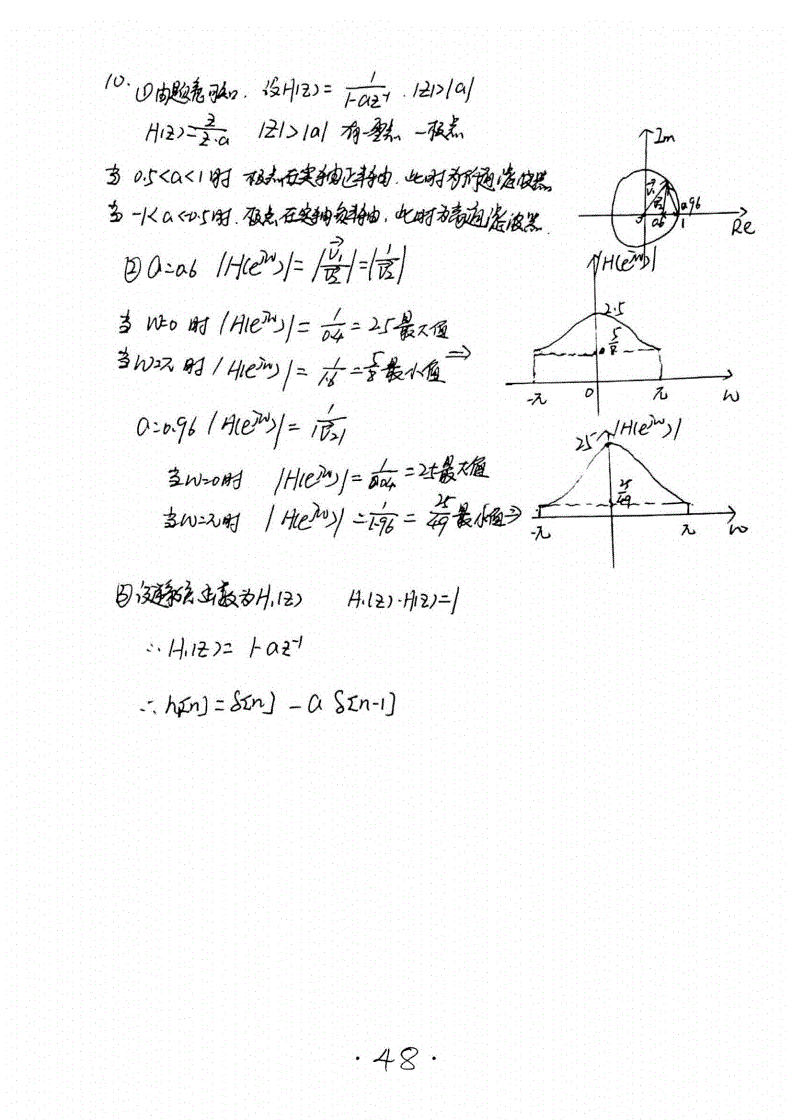 10. ①由题意可知, 设H(z)= 1/(1-az⁻¹) , |z|>|a|
H(z)= z/(z-a) |z|>|a| 有一零点 一极点
当 0.5<a<1时 极点在实轴正半轴, 此时为低通滤波器
当 -1<a<-0.5时, 极点在实轴负半轴, 此时为高通滤波器.
Im
V₁
V₂
0
0.6
0.96
1
Re
② a=0.6 |H(e^{jw})|=|V₁/V₂|=|1/V₂|
当 w=0 时 |H(e^{jw})|= 1/0.4 = 2.5 最大值
当w=π 时 |H(e^{jw})|= 1/1.6 = 5/8 最小值 ⇒
|H(e^{jw})|
2.5
5/8
-π 0 π w
a=0.96 |H(e^{jw})|= 1/|V₂|
当w=0时 |H(e^{jw})|= 1/0.04 = 25最大值
当w=π时 |H(e^{jw})|= 1/1.96 = 25/49 最小值⇒
25 |H(e^{jw})|
25/49
-π π w
③设逆系统函数为H₁(z) H₁(z)·H(z)=1
∴ H₁(z)= 1-az⁻¹
∴ h₁[n]=δ[n] - a δ[n-1]
· 48 ·